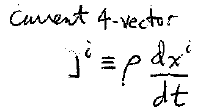 current 4-vector
J^i ≡ ρ dx^i/dt